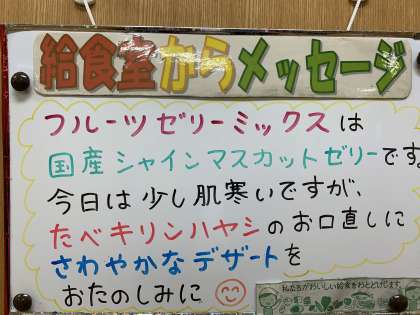 給食室からメッセージ
フルーツゼリーミックスは
国産シャインマスカットゼリーです
今日は少し肌寒いですが、
たべキリンハヤシのお口直しに
さわやかなデザートを
おたのしみに
私たちがおいしい給食をおとどけします。